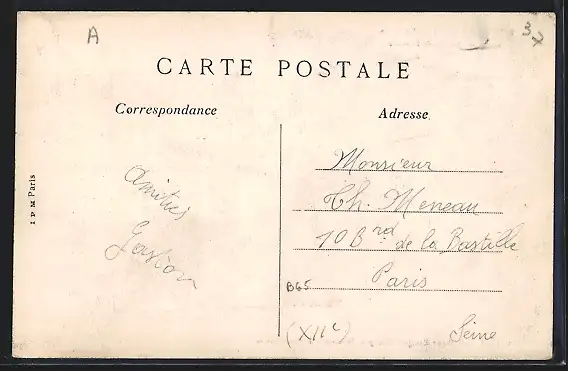 A
3x
CARTE POSTALE
Correspondance
Adresse
I P M Paris
Amitiés
Gaston
Monsieur
Th. Meneau
10 Brd de la Bastille
Paris
B65
(XIIe)
Seine